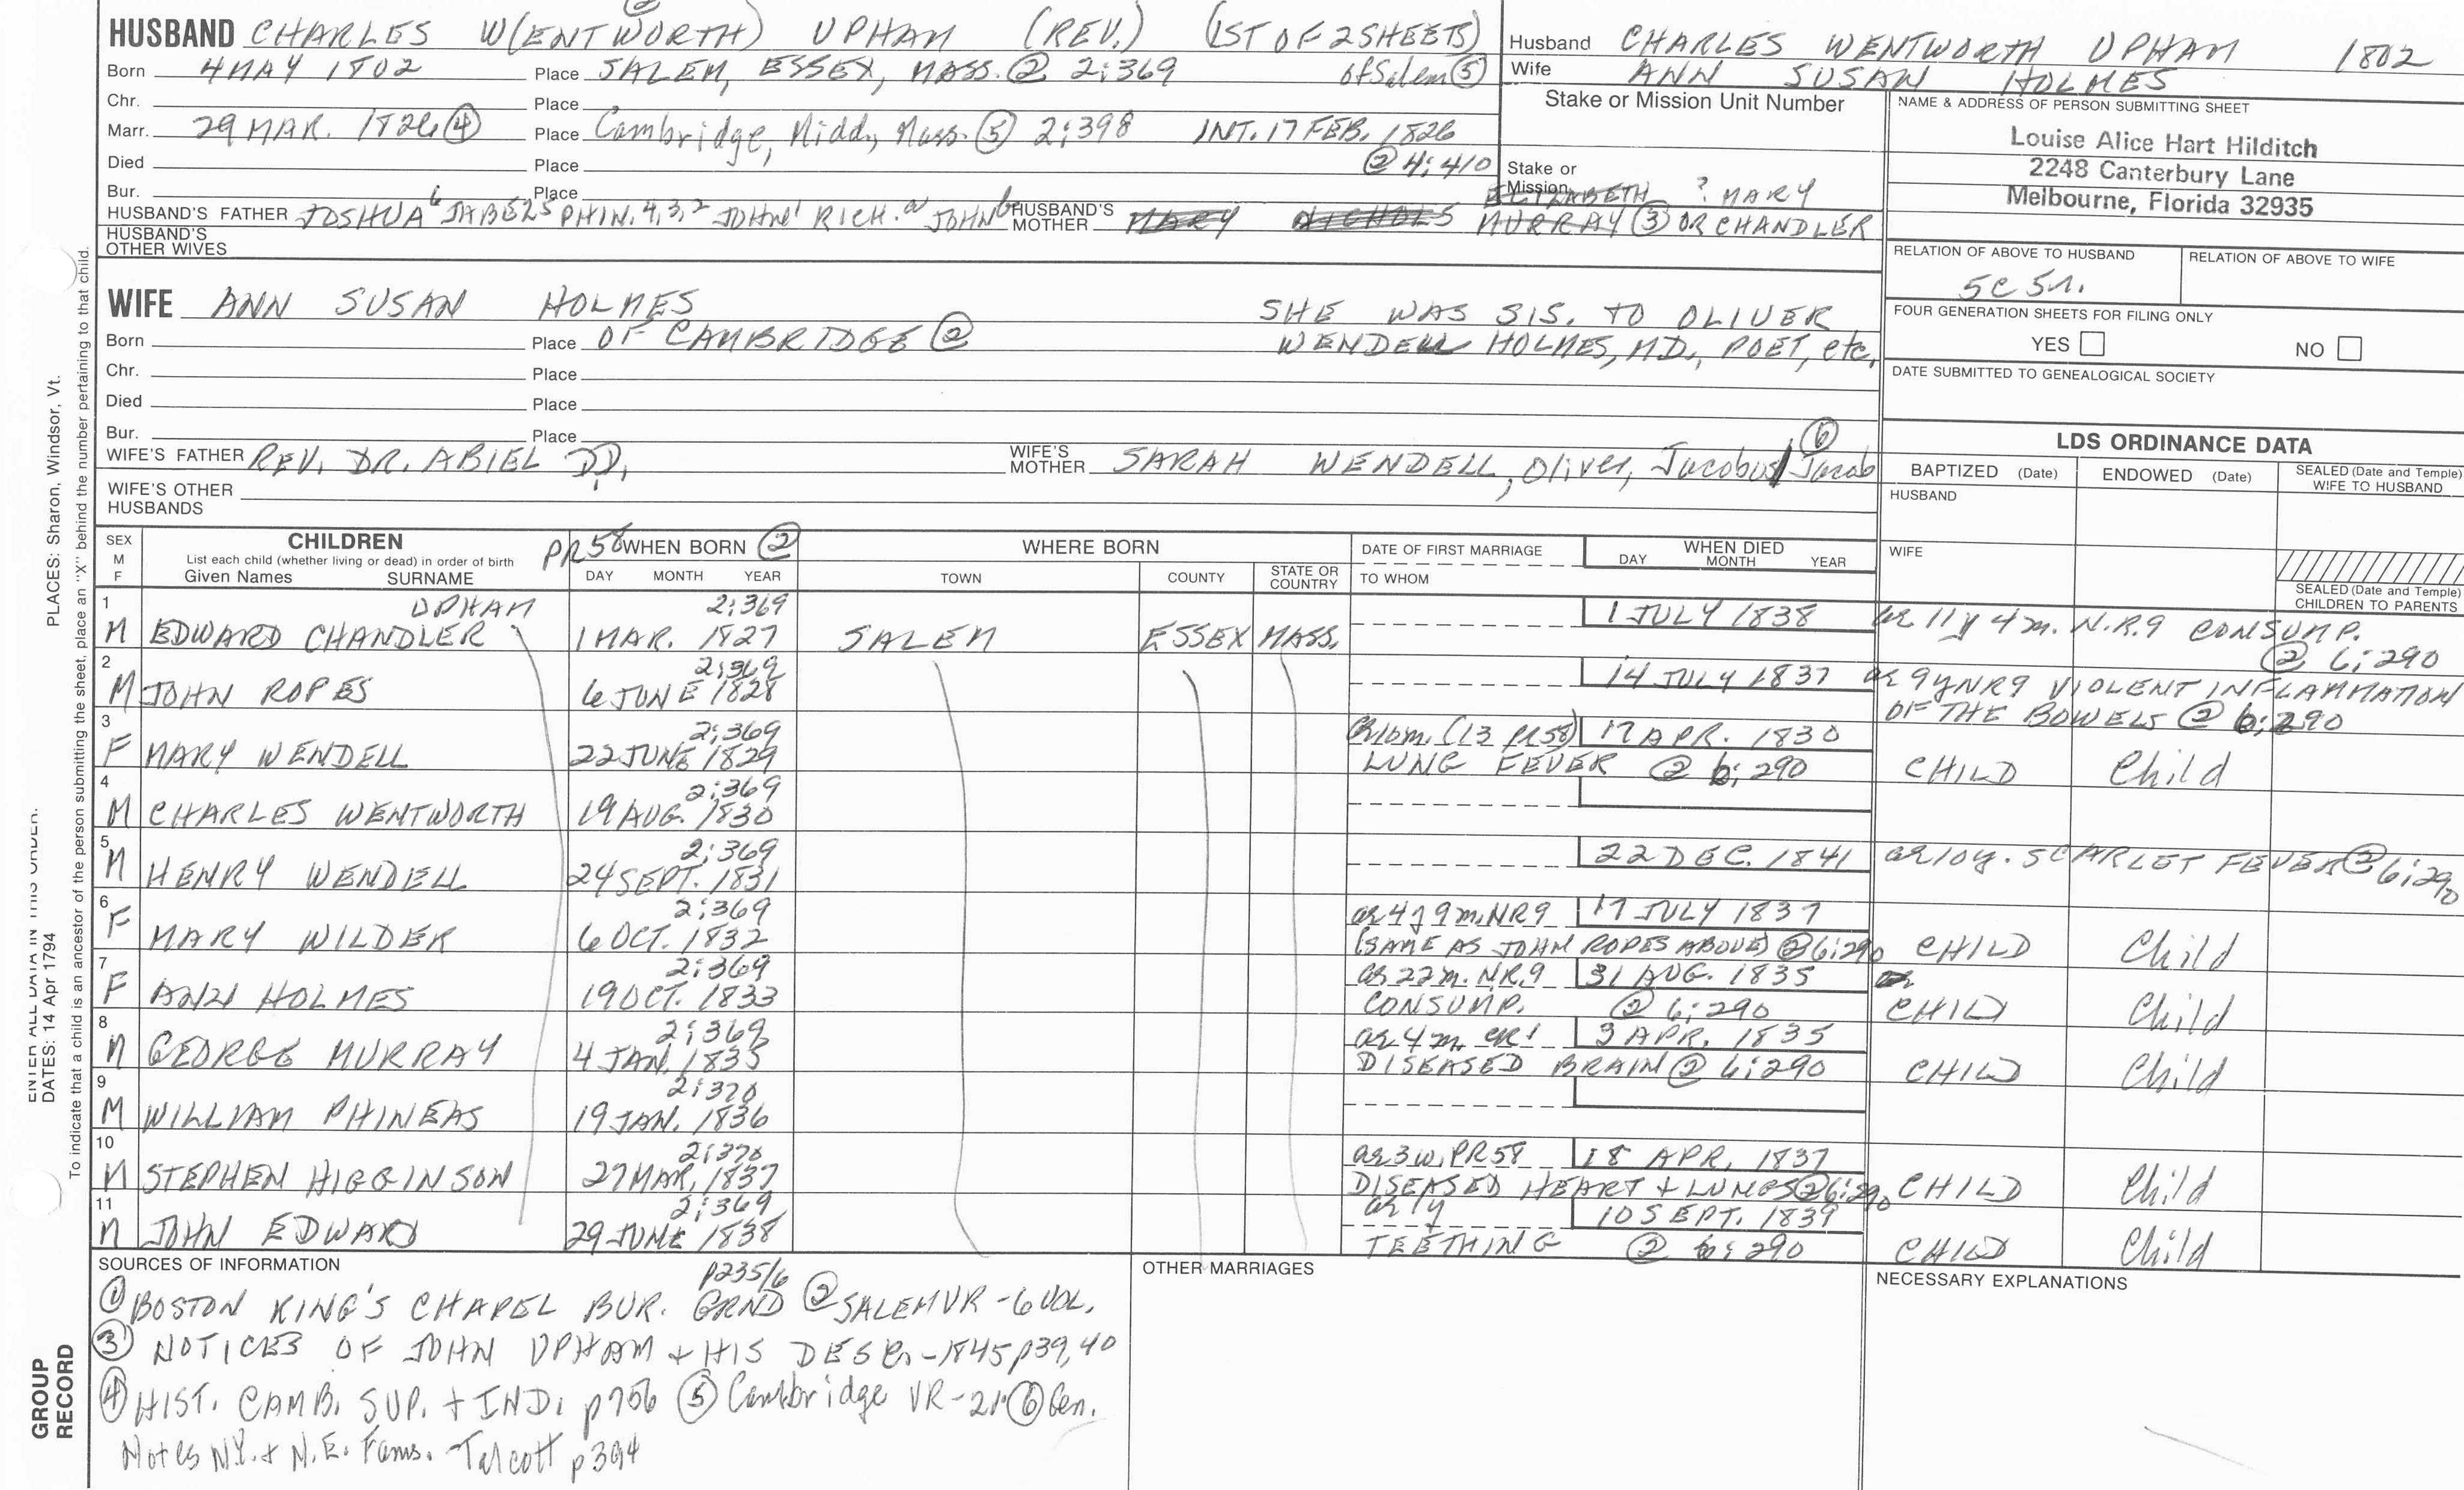 HUSBAND CHARLES W(ENTWORTH) UPHAM (REV.) (1ST OF 2 SHEETS)
Born 4 MAY 1802 Place SALEM, ESSEX, MASS. ② 2:369 of Salem ⑤
Chr. Place
Marr. 29 MAR. 1826 ④ Place Cambridge, Midd., Mass. ⑤ 2:398 INT. 17 FEB. 1826
Died Place ② 4:410
Bur. Place ELIZABETH ? MARY
HUSBAND'S FATHER JOSHUA6 JABEZ5 PHIN.4,3,2 JOHN1 RICH.a JOHNb HUSBAND'S MOTHER MARY NICHOLS MURRAY ③ OR CHANDLER
HUSBAND'S OTHER WIVES
Husband CHARLES WENTWORTH UPHAM 1802
Wife ANN SUSAN HOLMES
Stake or Mission Unit Number
Stake or Mission
NAME & ADDRESS OF PERSON SUBMITTING SHEET
Louise Alice Hart Hilditch
2248 Canterbury Lane
Melbourne, Florida 32935
RELATION OF ABOVE TO HUSBAND RELATION OF ABOVE TO WIFE
5C 5r.
FOUR GENERATION SHEETS FOR FILING ONLY
YES NO
DATE SUBMITTED TO GENEALOGICAL SOCIETY
WIFE ANN SUSAN HOLMES SHE WAS SIS. TO OLIVER
Born Place OF CAMBRIDGE ② WENDELL HOLMES, M.D., POET, etc.
Chr. Place
Died Place
Bur. Place
WIFE'S FATHER REV. DR. ABIEL D.D. WIFE'S MOTHER SARAH WENDELL, Oliver, Jacobus/Jacob ⑥
WIFE'S OTHER HUSBANDS
LDS ORDINANCE DATA
BAPTIZED (Date) ENDOWED (Date) SEALED (Date and Temple) WIFE TO HUSBAND
HUSBAND
WIFE
SEALED (Date and Temple) CHILDREN TO PARENTS
SEX M F CHILDREN PR58 WHEN BORN ② WHERE BORN DATE OF FIRST MARRIAGE WHEN DIED
List each child (whether living or dead) in order of birth
Given Names SURNAME DAY MONTH YEAR TOWN COUNTY STATE OR COUNTRY TO WHOM DAY MONTH YEAR
1 UPHAM 2:369 1 JULY 1838 ae 11y 4m. N.R.9 CONSUMP.
M EDWARD CHANDLER 1 MAR. 1827 SALEM ESSEX MASS. ② 6:290
2 2:369 14 JULY 1837 ae 9y NR9 VIOLENT INFLAMMATION
M JOHN ROPES 6 JUNE 1828 OF THE BOWELS ② 6:290
3 2:369 ae 10m. (13 PR58) 17 APR. 1830
F MARY WENDELL 22 JUNE 1829 LUNG FEVER ② 6:290 CHILD Child
4 2:369
M CHARLES WENTWORTH 19 AUG. 1830
5 2:369 22 DEC. 1841 ae 10y. SCARLET FEVER ② 6:290
M HENRY WENDELL 24 SEPT. 1831
6 2:369 ae 4y 9m. NR9 17 JULY 1837
F MARY WILDER 6 OCT. 1832 (SAME AS JOHN ROPES ABOVE) ② 6:290 CHILD Child
7 2:369 ae 22m. NR.9 31 AUG. 1835
F ANN HOLMES 19 OCT. 1833 CONSUMP. ② 6:290 CHILD Child
8 2:369 ae 4m. CR1 3 APR. 1835
M GEORGE MURRAY 4 JAN. 1835 DISEASED BRAIN ② 6:290 CHILD Child
9 2:370
M WILLIAM PHINEAS 19 JAN. 1836
10 2:370 ae 3w. PR58 18 APR. 1837
M STEPHEN HIGGINSON 27 MAR. 1837 DISEASED HEART + LUNGS ② 6:290 CHILD Child
11 2:369 ae 1y 10 SEPT. 1839
M JOHN EDWARD 29 JUNE 1838 TEETHING ② 6:290 CHILD Child
SOURCES OF INFORMATION OTHER MARRIAGES NECESSARY EXPLANATIONS
p235/6
① BOSTON KING'S CHAPEL BUR. GRND ② SALEM VR - 6 VOL.
③ NOTICES OF JOHN UPHAM + HIS DESC. - 1845 p39,40
④ HIST. CAMB. SUP. + IND. p756 ⑤ Cambridge VR - 2v ⑥ Gen.
Notes N.Y. + N.E. Fams. Talcott p394
ENTER ALL DATA IN THIS ORDER:
DATES: 14 Apr 1794
PLACES: Sharon, Windsor, Vt.
To indicate that a child is an ancestor of the person submitting the sheet, place an "X" behind the number pertaining to that child.
GROUP RECORD